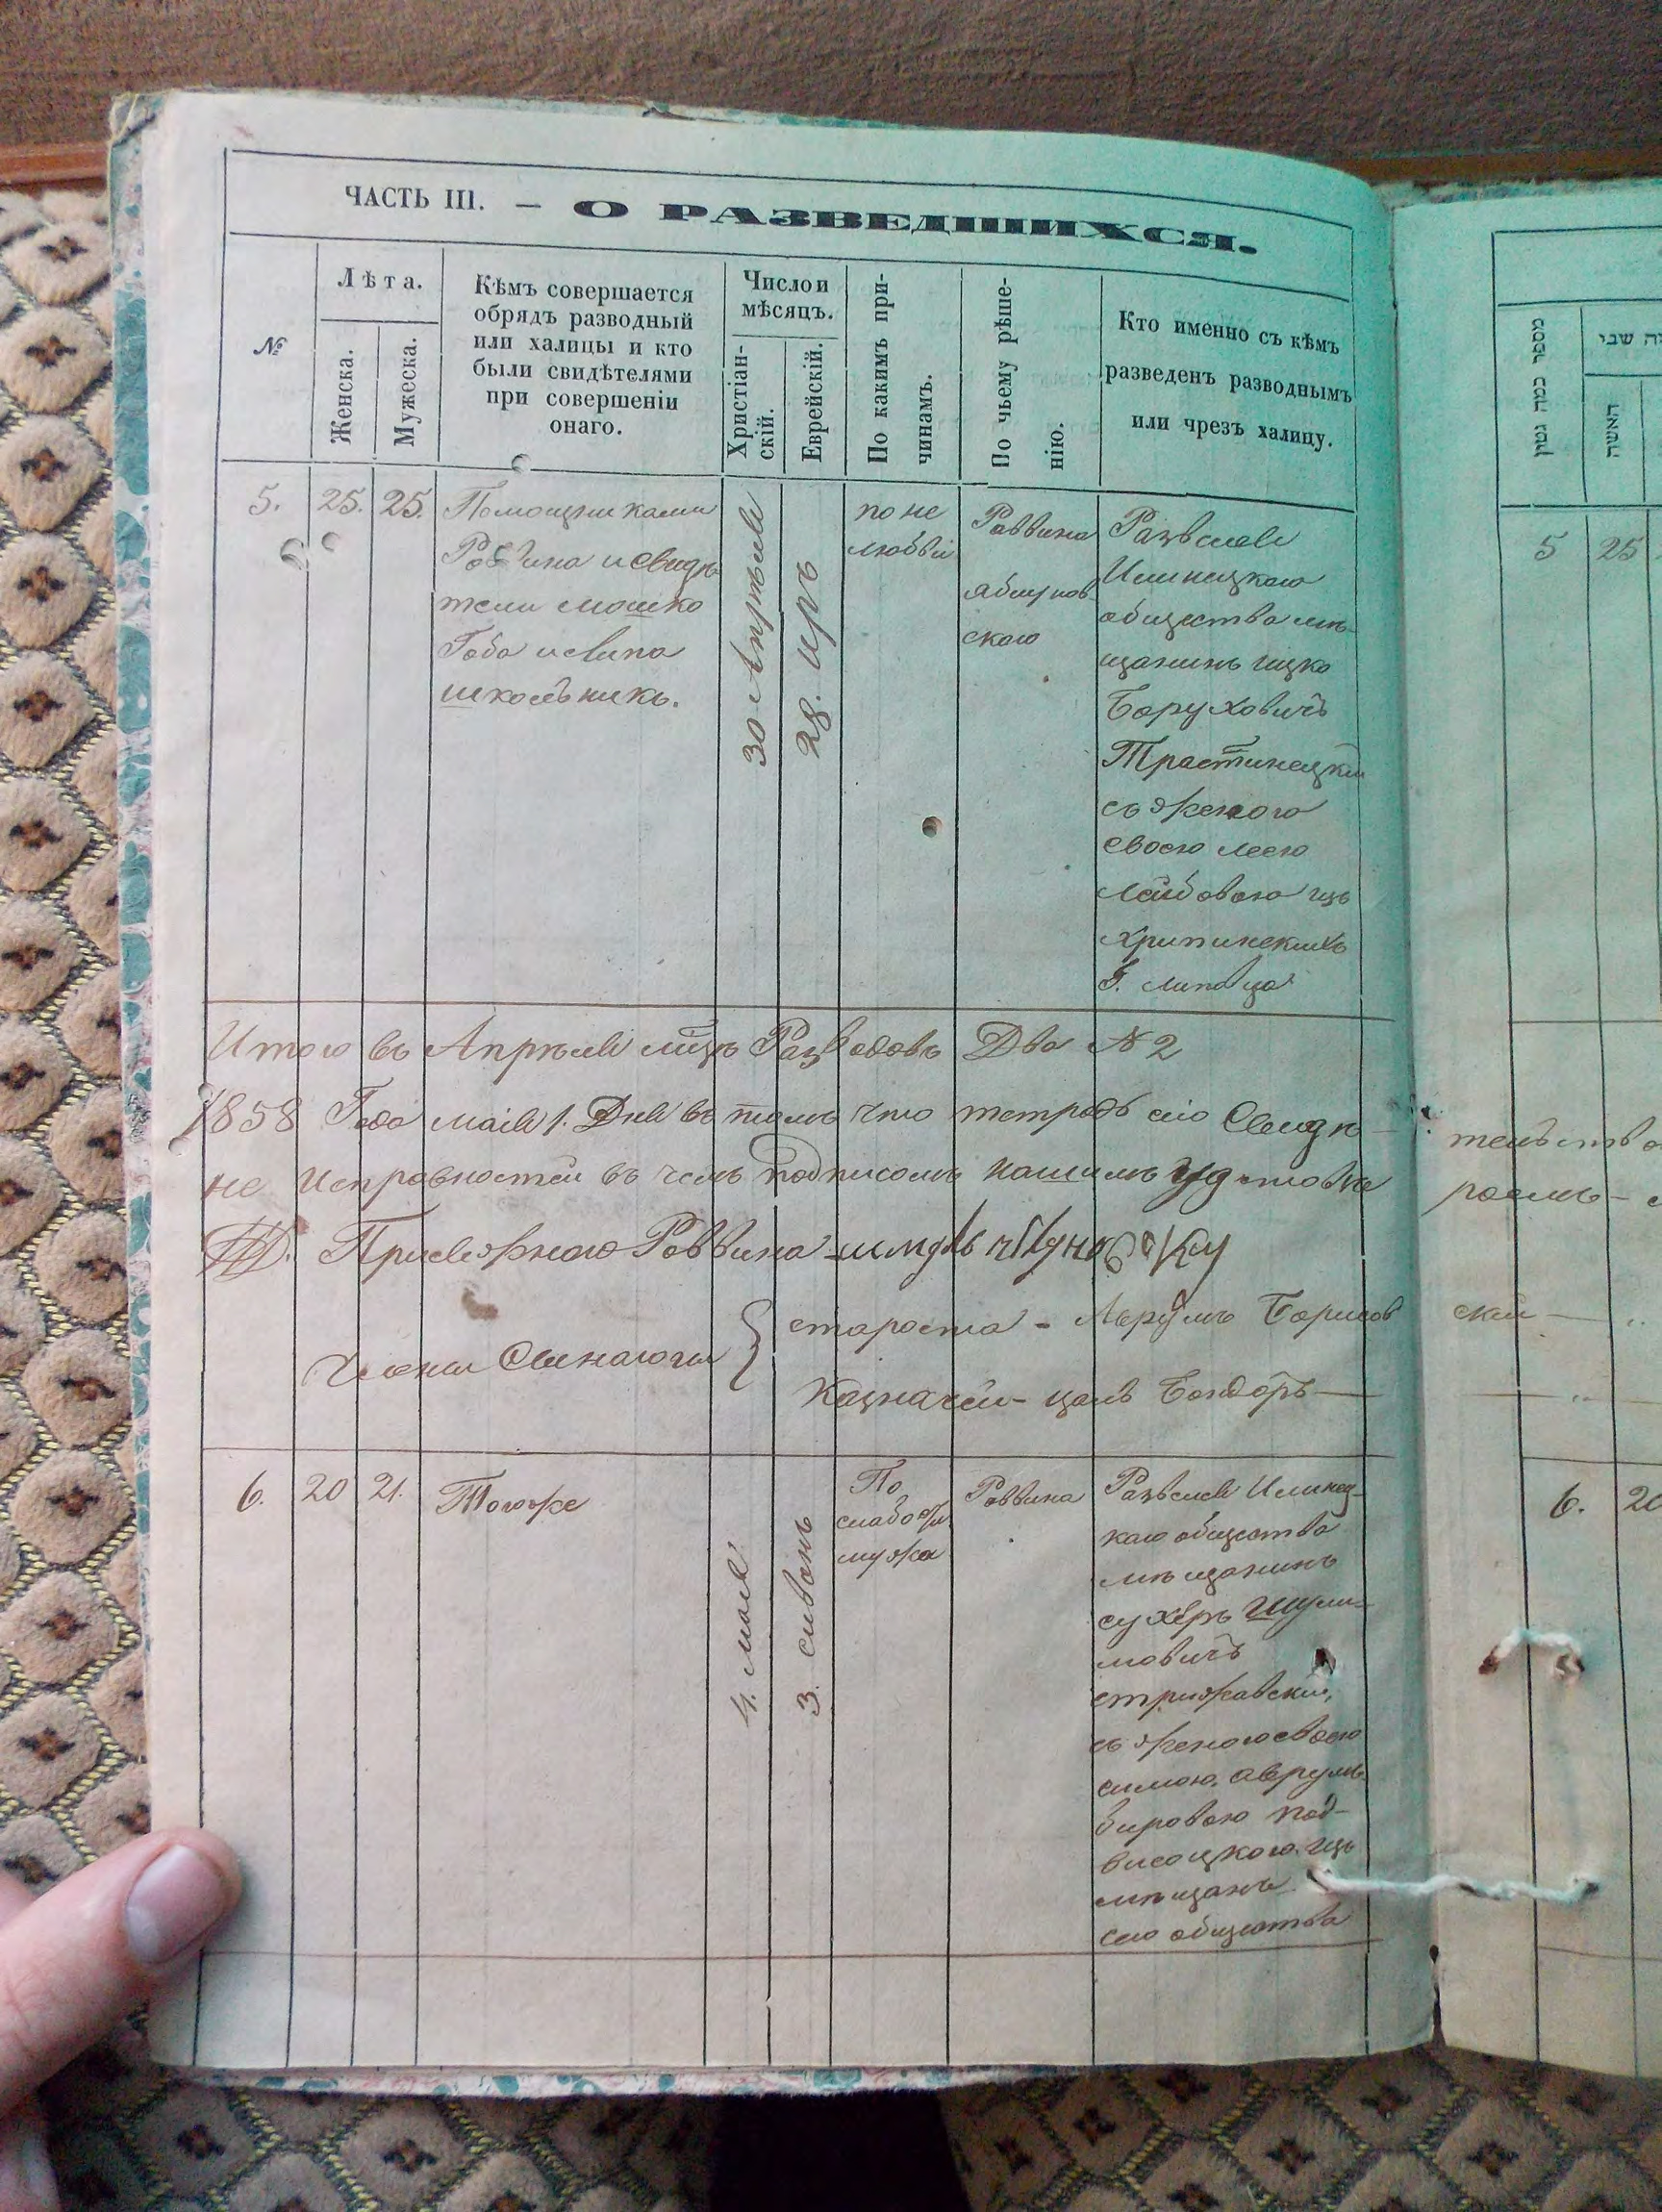 ЧАСТЬ III. — О РАЗВЕДШИХСЯ.
№
Лѣта.
Женска.
Мужеска.
Кѣмъ совершается
обрядъ разводный
или халицы и кто
были свидѣтелями
при совершеніи
онаго.
Число и
мѣсяцъ.
Христіан-
скій.
Еврейскій.
По какимъ при-
чинамъ.
По чьему рѣше-
нію.
Кто именно съ кѣмъ
разведенъ разводнымъ
или чрезъ халицу.
5.
25.
25.
Помощниками
Раввина и свидѣ
тели мошко
Габа и липа
школьникъ.
30 Апрѣля
28. иръ
по не
любви
Раввина
ского
Развелся
Илинецкого
общества мѣ-
щанинъ ицко
Боруховичъ
Трастинецкій
съ женою
своею леею
лейбовою изъ
Г. липовца
Итого въ Апрѣле мцѣ Разводовъ Два № 2
1858 Года маія 1. Дня въ томъ что тетрадь сію Свидѣ
не исправностей въ чемъ подписомъ нашимъ
Присяжного Раввина
Члени Синагоги
староста - Аврумъ Борисов
Казначей - Бондоръ
6.
20
21.
Тогоже
4. мая
3. сивонъ
По
слабости
мужа
Раввина
Развелся Илинец-
кого общества
мѣщанинъ
сухеръ шули-
мовичъ
стрижавскій,
съ женою своею
симою, аврумъ
бировою под-
висоцкого изъ
мѣщанъ
сего общества
מספר כמה גטין
האשה
5
25
6.
20